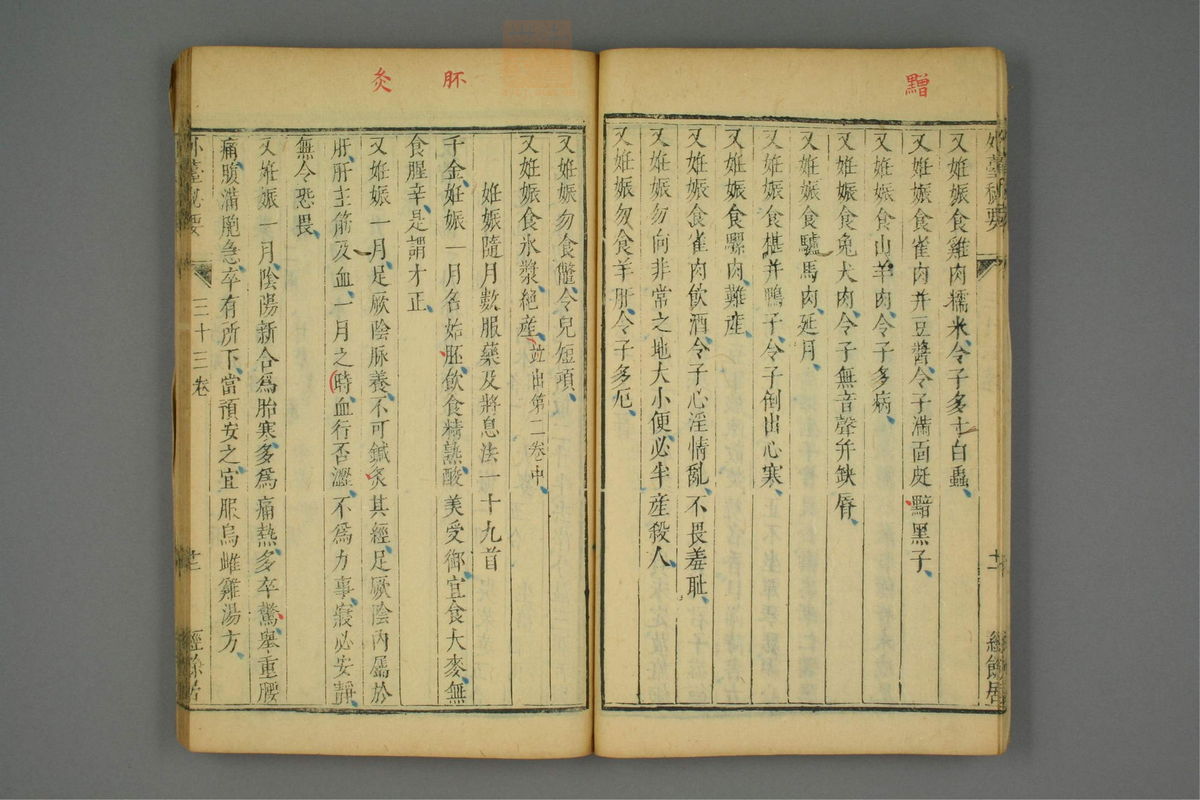 黵
外臺秘要
十一
經餘居
又妊娠食雞肉糯米令子多寸白蟲
又妊娠食雀肉并豆醬令子滿面皯黯黑子
又妊娠食山羊肉令子多病
又妊娠食兔犬肉令子無音聲并缺脣
又妊娠食驢馬肉延月
又妊娠食椹并鴨子令子倒出心寒
又妊娠食騾肉難產
又妊娠食雀肉飲酒令子心淫情亂不畏羞耻
又妊娠勿向非常之地大小便必半產殺人
又妊娠勿食羊肝令子多厄
胚
灸
又妊娠勿食鼈令兒短項
又妊娠食氷漿絕產並出第二卷中
妊娠隨月數服藥及將息法一十九首
千金妊娠一月名始胚飲食精熟酸美受御宜食大麥無
食腥辛是謂才正
又妊娠一月足厥陰脉養不可鍼灸其經足厥陰內屬於
肝肝主筋及血一月之時血行否澀不為力事寢必安靜
無令恐畏
又妊娠一月陰陽新合為胎寒多為痛熱多卒驚舉重腰
痛腹滿胞急卒有所下當預安之宜服烏雌雞湯方
外臺秘要
三十三卷
十二
經餘居